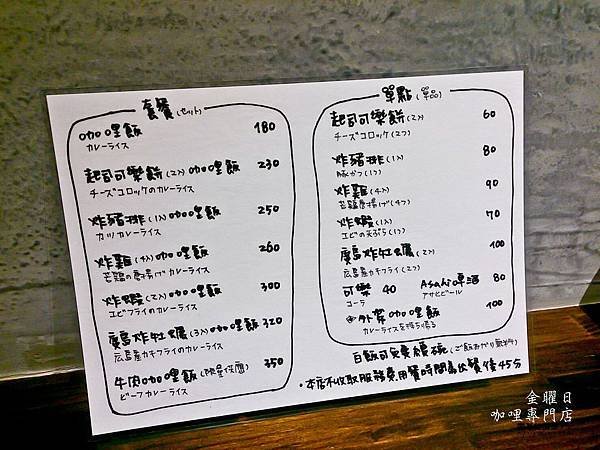 套餐(セット)
咖哩飯 180
カレーライス
起司可樂餅(2入)咖哩飯 230
チーズコロッケのカレーライス
炸豬排(1入)咖哩飯 250
カツカレーライス
炸雞(4入)咖哩飯 260
若鶏の唐揚げカレーライス
炸蝦(2入)咖哩飯 300
エビフライのカレーライス
廣島炸牡蠣(3入)咖哩飯 320
広島産カキフライのカレーライス
牛肉咖哩飯(限量供應) 350
ビーフカレーライス
單點(単品)
起司可樂餅(2入) 60
チーズコロッケ(2つ)
炸豬排(1入) 80
豚かつ(1つ)
炸雞(4入) 90
若鶏唐揚げ(4つ)
炸蝦(1入) 70
エビの天ぷら(1つ)
廣島炸牡蠣(2入) 100
広島産カキフライ(2つ)
可樂 40 Asahi啤酒 80
コーラ アサヒビール
外帶咖哩飯 100
カレーライスを持ち帰る
白飯可免費續碗(ご飯おかわり無料)
・本店不收取服務費用餐時間為出餐後45分
金曜日
咖哩專門店